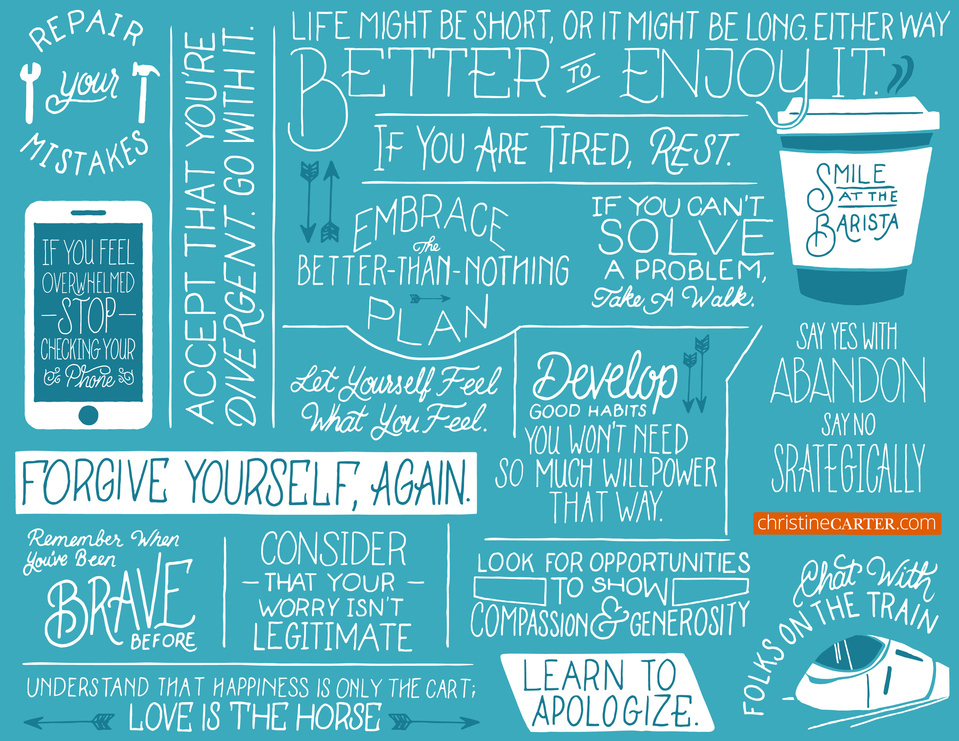 REPAIR
your
MISTAKES
ACCEPT THAT YOU'RE
DIVERGENT. GO WITH IT.
LIFE MIGHT BE SHORT, OR IT MIGHT BE LONG. EITHER WAY
BETTER TO ENJOY IT.
IF YOU ARE TIRED, REST.
SMILE
AT THE
BARISTA
IF YOU FEEL
OVERWHELMED
STOP
CHECKING YOUR
Phone
EMBRACE
The
BETTER-THAN-NOTHING
PLAN
IF YOU CAN'T
SOLVE
A PROBLEM,
Take A Walk.
Let Yourself Feel
What You Feel.
Develop
GOOD HABITS
YOU WON'T NEED
SO MUCH WILLPOWER
THAT WAY.
SAY YES WITH
ABANDON
SAY NO
SRATEGICALLY
FORGIVE YOURSELF, AGAIN.
christineCARTER.com
Remember When
You've Been
BRAVE
BEFORE
CONSIDER
- THAT YOUR -
WORRY ISN'T
LEGITIMATE
LOOK FOR OPPORTUNITIES
TO SHOW
COMPASSION & GENEROSITY
Chat With
FOLKS ON THE TRAIN
UNDERSTAND THAT HAPPINESS IS ONLY THE CART;
LOVE IS THE HORSE
LEARN TO
APOLOGIZE.